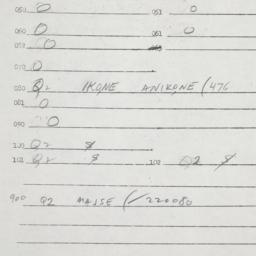 050 0 051 0
060 0 061 0
0
070 0
080 Q2 IKONE ANIKONE (476
081 0
090 0
100 Q2 $
101 Q2 $ 102 Q2 $
900 Q2 MASSE (/220080